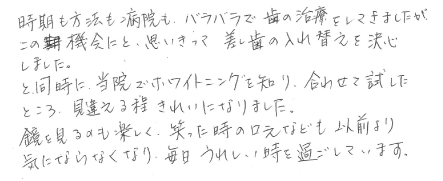 時期も方法も病院も、バラバラで歯の治療をしてきましたが
この機会にと、思いきって差し歯の入れ替えを決心
しました。
と同時に、当院でホワイトニングを知り、合わせて試した
ところ、見違える程きれいになりました。
鏡を見るのも楽しく、笑った時の口元なども以前より
気にならなくなり、毎日うれしい時を過ごしています。